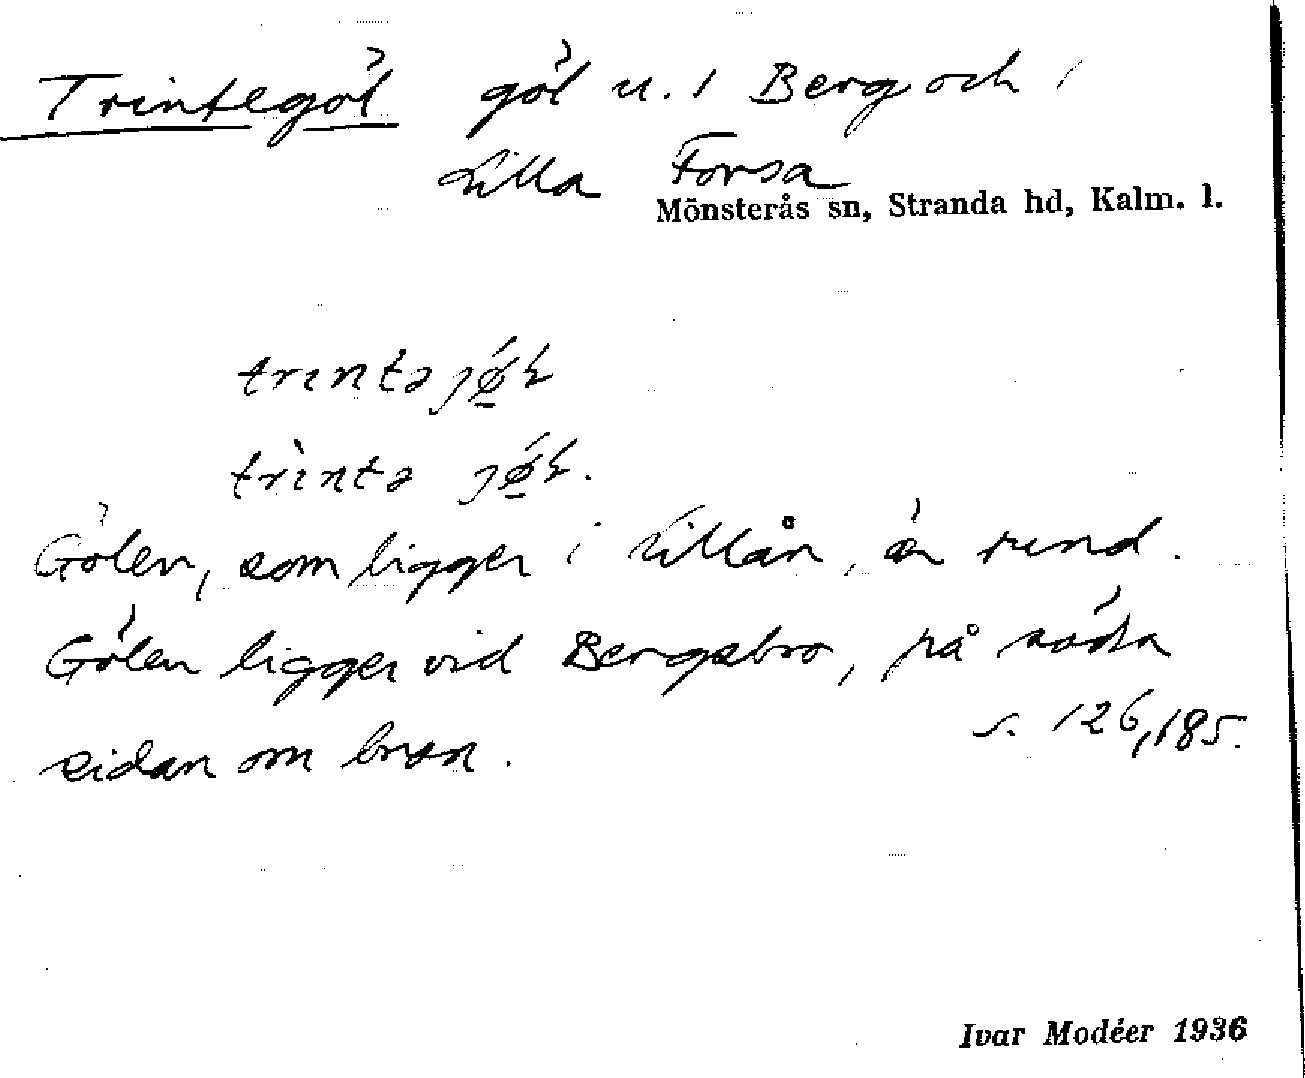 Trintegöl göl u. 1 Berg och 1
Lilla Forsa
Mönsterås sn, Stranda hd, Kalm. l.
trıntə jǿ̱ł
trı̀ntə jǿ̱ł.
Gölen, som ligger i Lillån, är rund.
Gölen ligger vid Bergsbro, på södra
sidan om bron.
s. 126, 185.
Ivar Modéer 1936